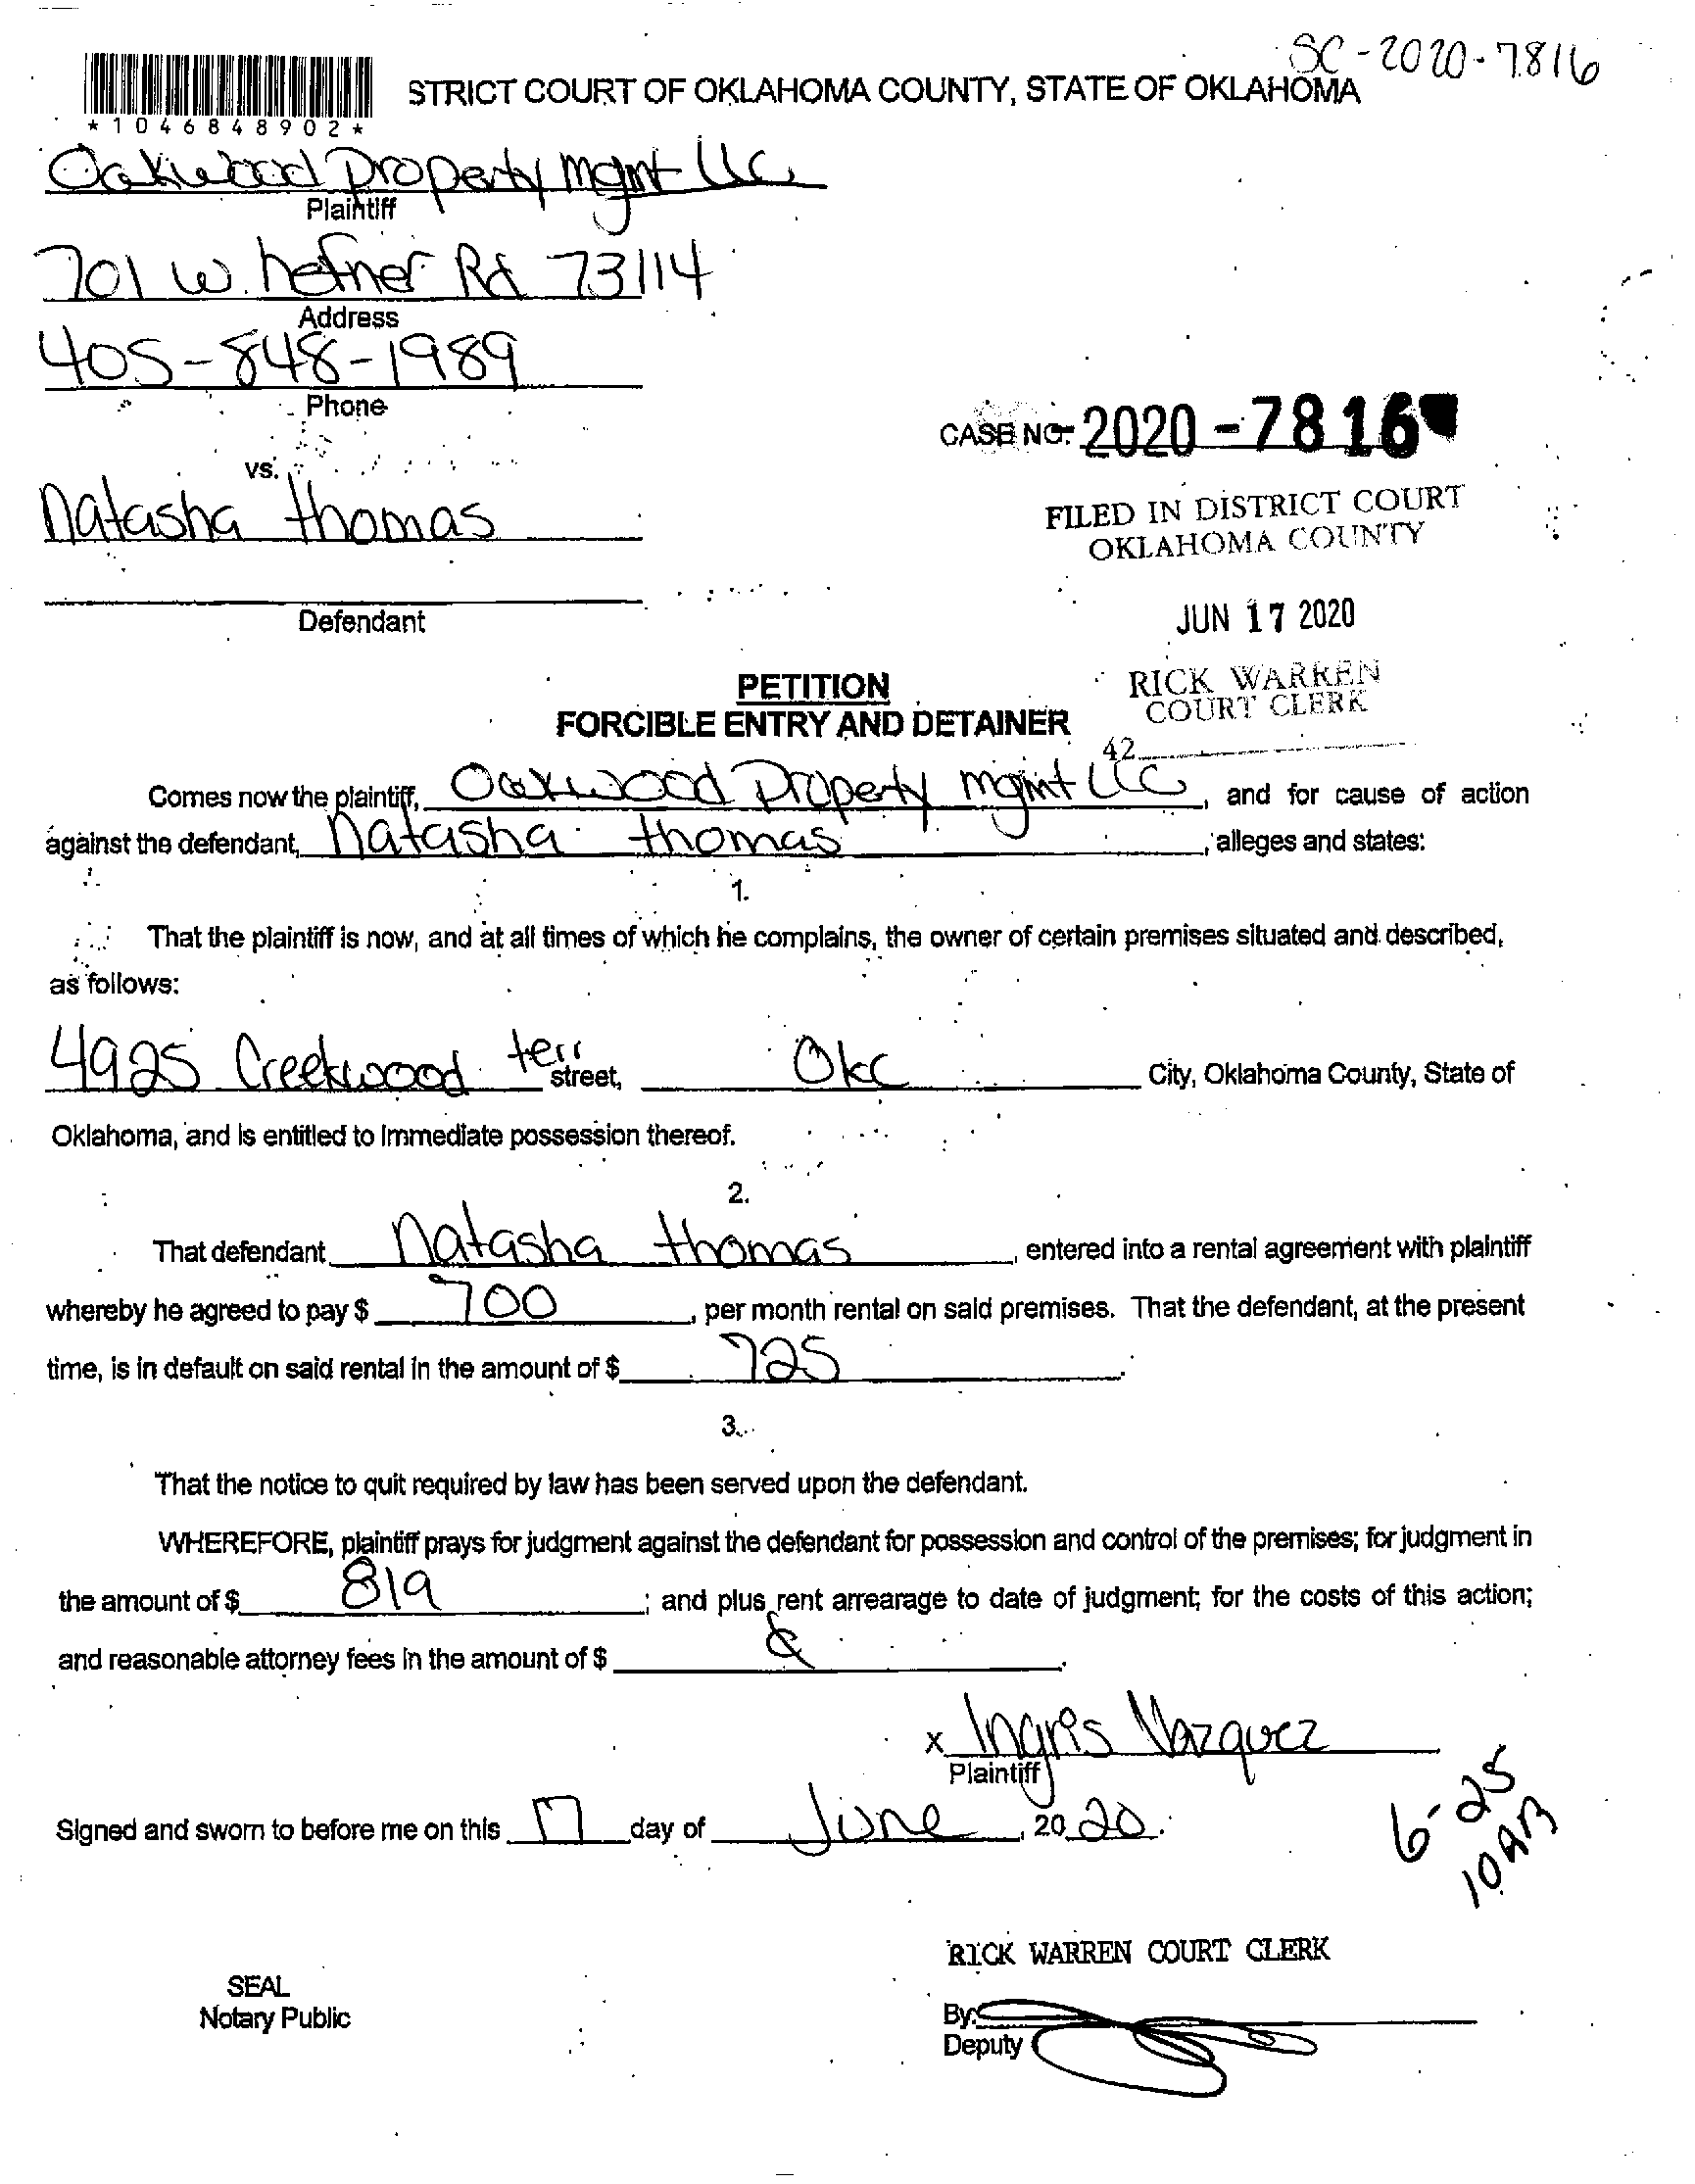 SC-2020-7816
STRICT COURT OF OKLAHOMA COUNTY, STATE OF OKLAHOMA
*1046848902*
Oakwood Property mgmt LLC
Plaintiff
701 W. hefner Rd 73114
Address
405-848-1989
Phone
CASE NO. 2020-7816
vs.
Natasha thomas
FILED IN DISTRICT COURT
OKLAHOMA COUNTY
Defendant
JUN 17 2020
PETITION
RICK WARREN
COURT CLERK
FORCIBLE ENTRY AND DETAINER
42
Comes now the plaintiff, Oakwood Property mgmt LLC, and for cause of action
against the defendant, Natasha thomas, alleges and states:
1.
That the plaintiff is now, and at all times of which he complains, the owner of certain premises situated and described,
as follows:
4925 Creekwood terr street, Okc City, Oklahoma County, State of
Oklahoma, and is entitled to immediate possession thereof.
2.
That defendant Natasha thomas, entered into a rental agreement with plaintiff
whereby he agreed to pay $ 700, per month rental on said premises. That the defendant, at the present
time, is in default on said rental in the amount of $ 725.
3.
That the notice to quit required by law has been served upon the defendant.
WHEREFORE, plaintiff prays for judgment against the defendant for possession and control of the premises; for judgment in
the amount of $ 819; and plus rent arrearage to date of judgment; for the costs of this action;
and reasonable attorney fees in the amount of $
x Ingris Vazquez
Plaintiff
Signed and sworn to before me on this 17 day of June, 2020.
6-25
10AM
RICK WARREN COURT CLERK
SEAL
Notary Public
By:
Deputy